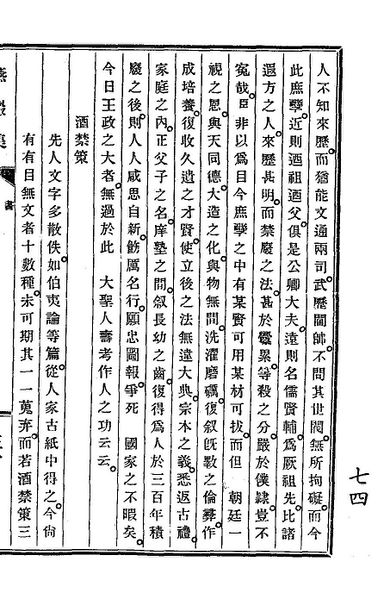 人不知來歷而猶能文通兩司武歷閫帥不問其世閥無所拘礙而今
此庶孽近則迺祖迺父俱是公卿大夫遠則名儒賢輔爲厥祖先比諸
遐方之人來歷甚明而禁廢之法甚於釁累等殺之分嚴於僕隷豈不
寃哉臣非以爲目今庶孽之中有某賢可用某材可拔而但 朝廷一
視之恩與天同德大造之化與物無間洗濯磨礪復叙旣斁之倫彝作
成培養復收久遺之才賢使立後之法無違大典宗本之義悉返古禮
家庭之內正父子之名庠塾之間叙長幼之齒復得爲人於三百年積
廢之後則人人咸思自新飭厲名行願忠圖報爭死 國家之不暇矣
今日王政之大者無過於此 大聖人壽考作人之功云云
酒禁策
先人文字多散佚如伯夷論等篇從人家古紙中得之今尙
有有目無文者十數種未可期其一一蒐弃而若酒禁策三
燕巖集
書
七四